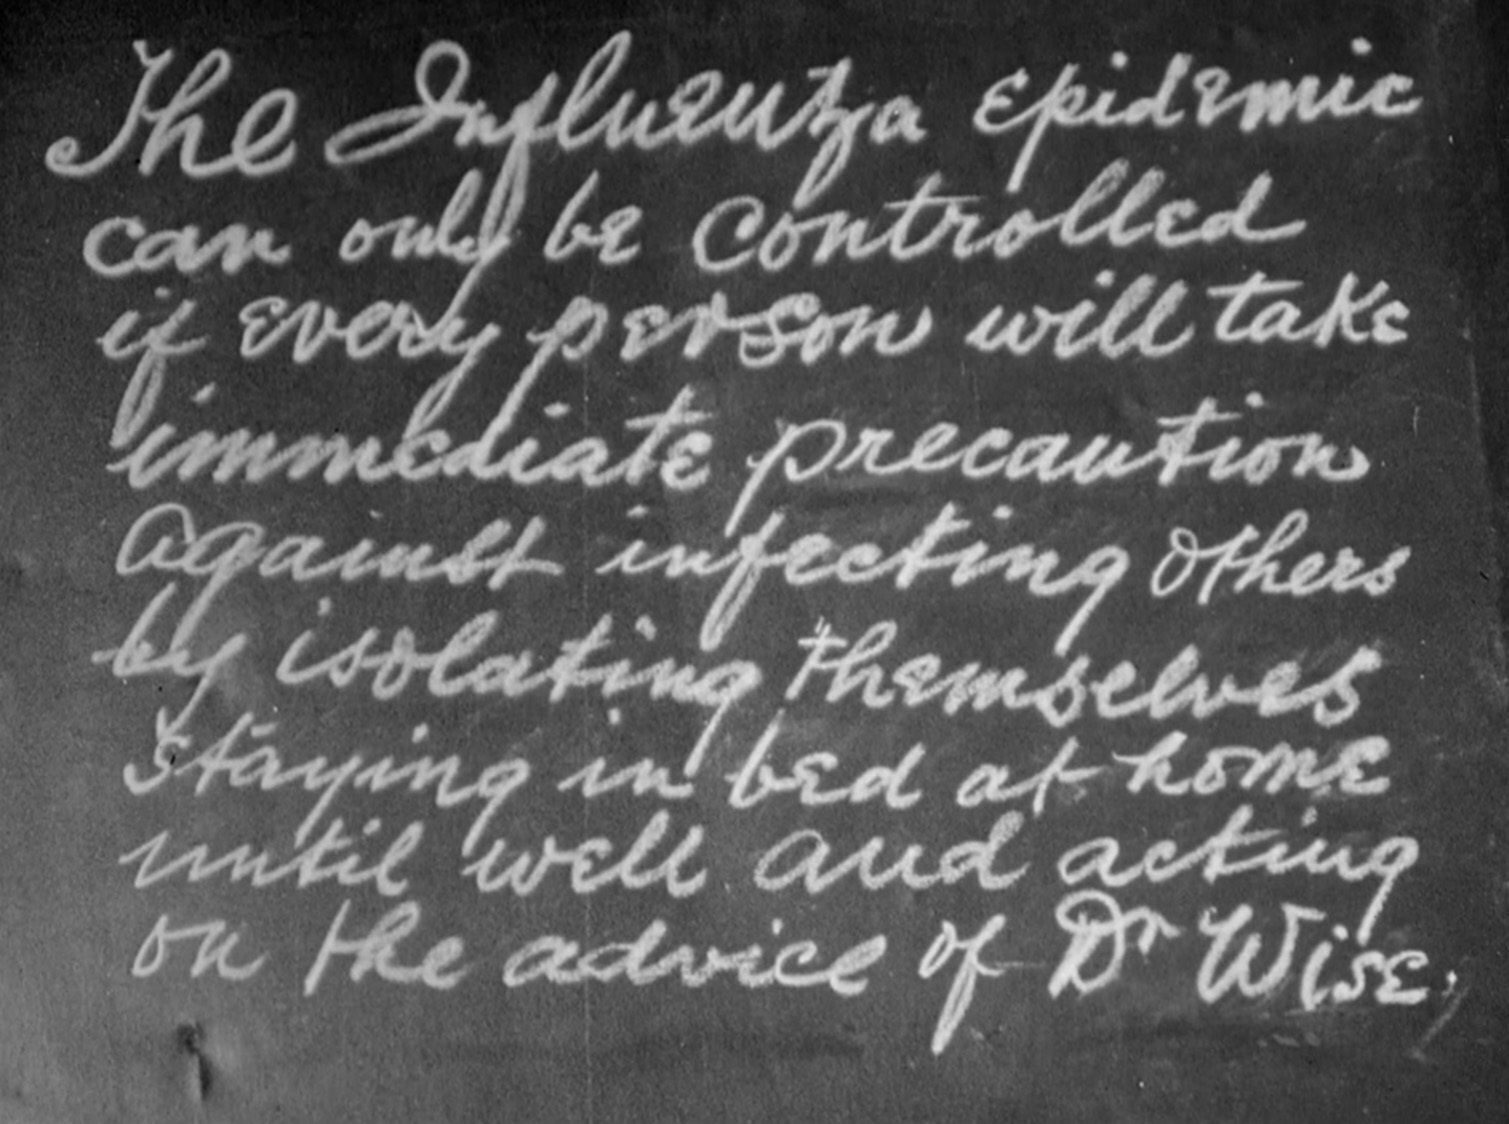 The Influenza epidemic
can only be controlled
if every person will take
immediate precaution
against infecting others
by isolating themselves
staying in bed at home
until well and acting
on the advice of Dr Wise.